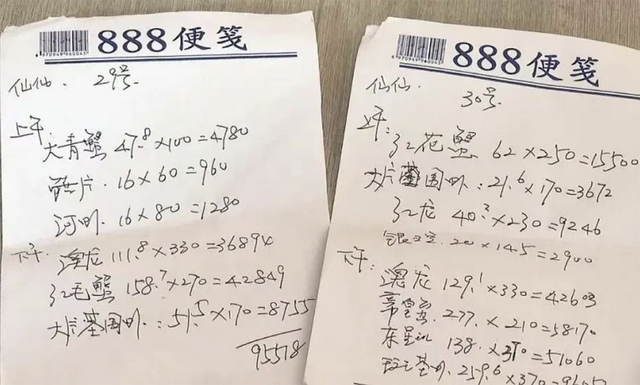 888便笺
仙仙. 29号.
上午
大青蟹 47.8×100=4780
片.16×60=960
河虾.16×80=1280
下午: 澳龙 111.8×330=36894
红毛蟹 158.7×270=42849
大基围虾.: 51.5×170=8755
95518
888便笺
仙仙. 30号.
上午: 红花蟹 62×250=15500
大基围虾.: 21.6×170=3672
红龙 40.2×230=9246
20×145=2900
下午: 澳龙 129.1×330=42603
277.×210=58170
东星 138.×370=51060
基虾. 259.6×370=